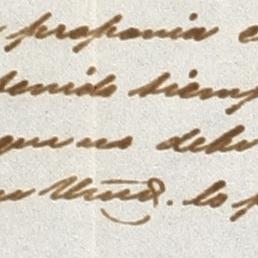 proponia
tenido siemp
que no debe
Umd. lo p